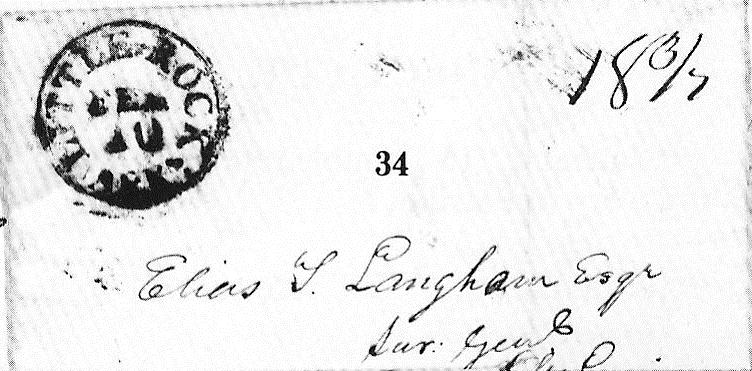 LITTLE ROCK
FEB
10
18 3/4
34
Elias T. Langham Esqr
Sur: Genl